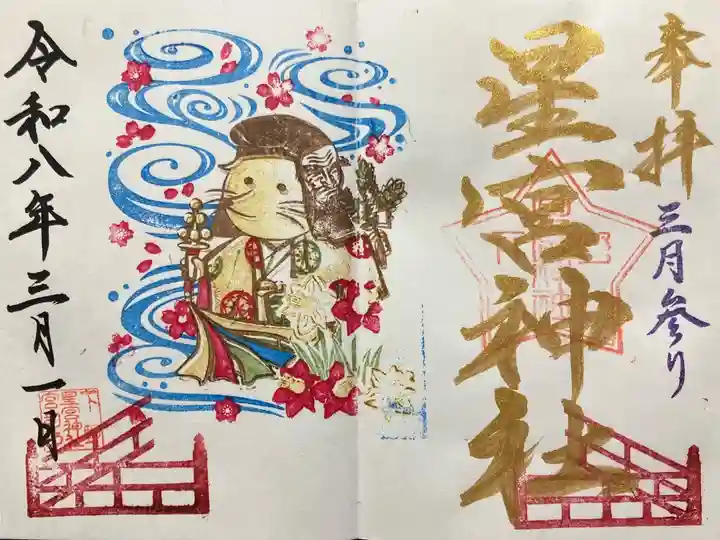 奉拝
三月参り
星宮神社
令和八年三月一日